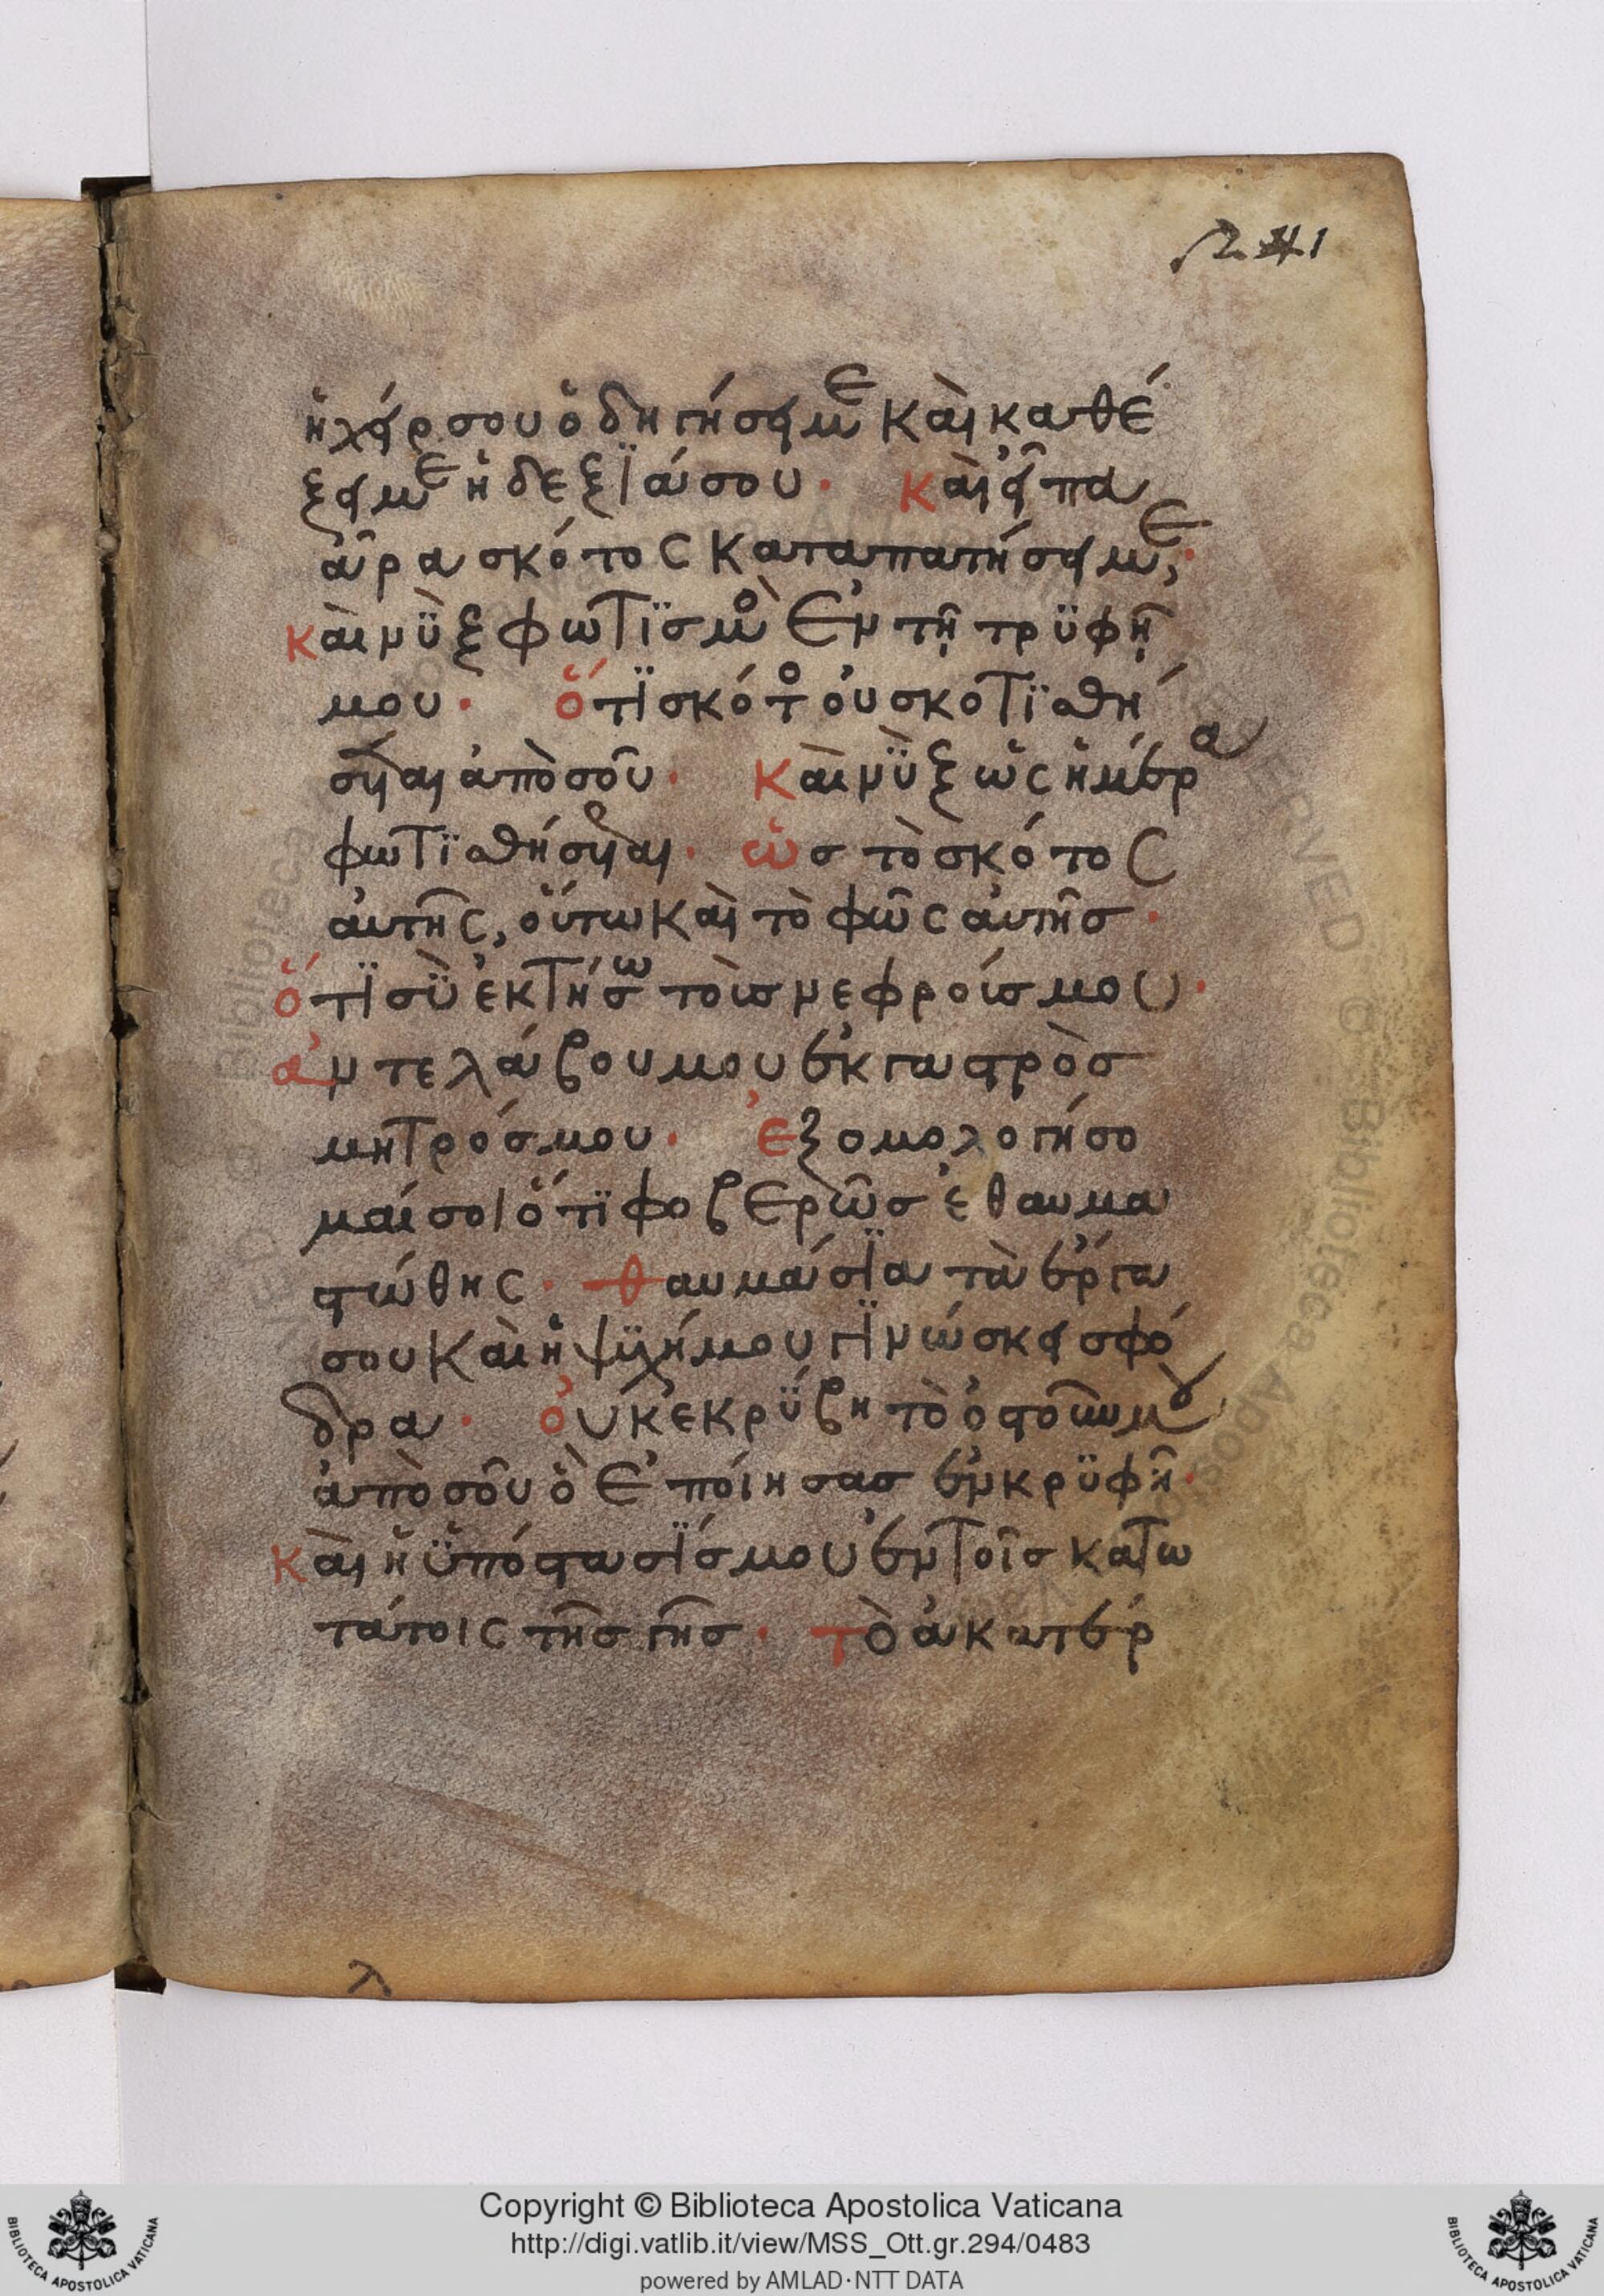 241
ἡ χείρ σου ὁδηγήσει με καὶ καθέ
ξει με ἡ δεξϊά σου· Καὶ εἶπα
ἆρα σκότος καταπατήσει με,·
Καὶ νῢξ φωτϊσμὸ Ἐν τῆ τρϋφῆ
μου· ὅτϊ σκότο οὐ σκοτϊσθή
σεται ἀπὸ σοῦ· Καὶ νῢξ ὡς ἡμέρα
φωτϊσθήσεται· ὡσ τὸ σκότος
αὐτῆς, οὕτω καὶ τὸ φῶς αὐτῆσ·
ὅτϊ σῢ ἐκτήσω τοὺσ νεφρούσ μου·
ἀντελάβου μου ἐκ γαστρὸσ
μητρόσ μου· ἐξομολογήσο
μαί σοι ὅτϊ φοβερῶσ ἐθαυμα
στώθης· θαυμάσϊα τὰ ἔργα
σου καὶ ἡ ψϋχή μου γϊνώσκει σφό
δρα· οὐκ ἐκρΰβη τὸ ὀστοῦν μου
ἀπὸ σοῦ ὃ Ἐποίησασ ἐν κρϋφῆ·
Καὶ ἡ ϋπόστασΐσ μου ἐν τοῖσ κατω
τάτοις τῆσ γῆσ· τὸ ἀκατέρ
λ
Copyright © Biblioteca Apostolica Vaticana
http://digi.vatlib.it/view/MSS_Ott.gr.294/0483
powered by AMLAD·NTT DATA
BIBLIOTECA APOSTOLICA VATICANA
BIBLIOTECA APOSTOLICA VATICANA